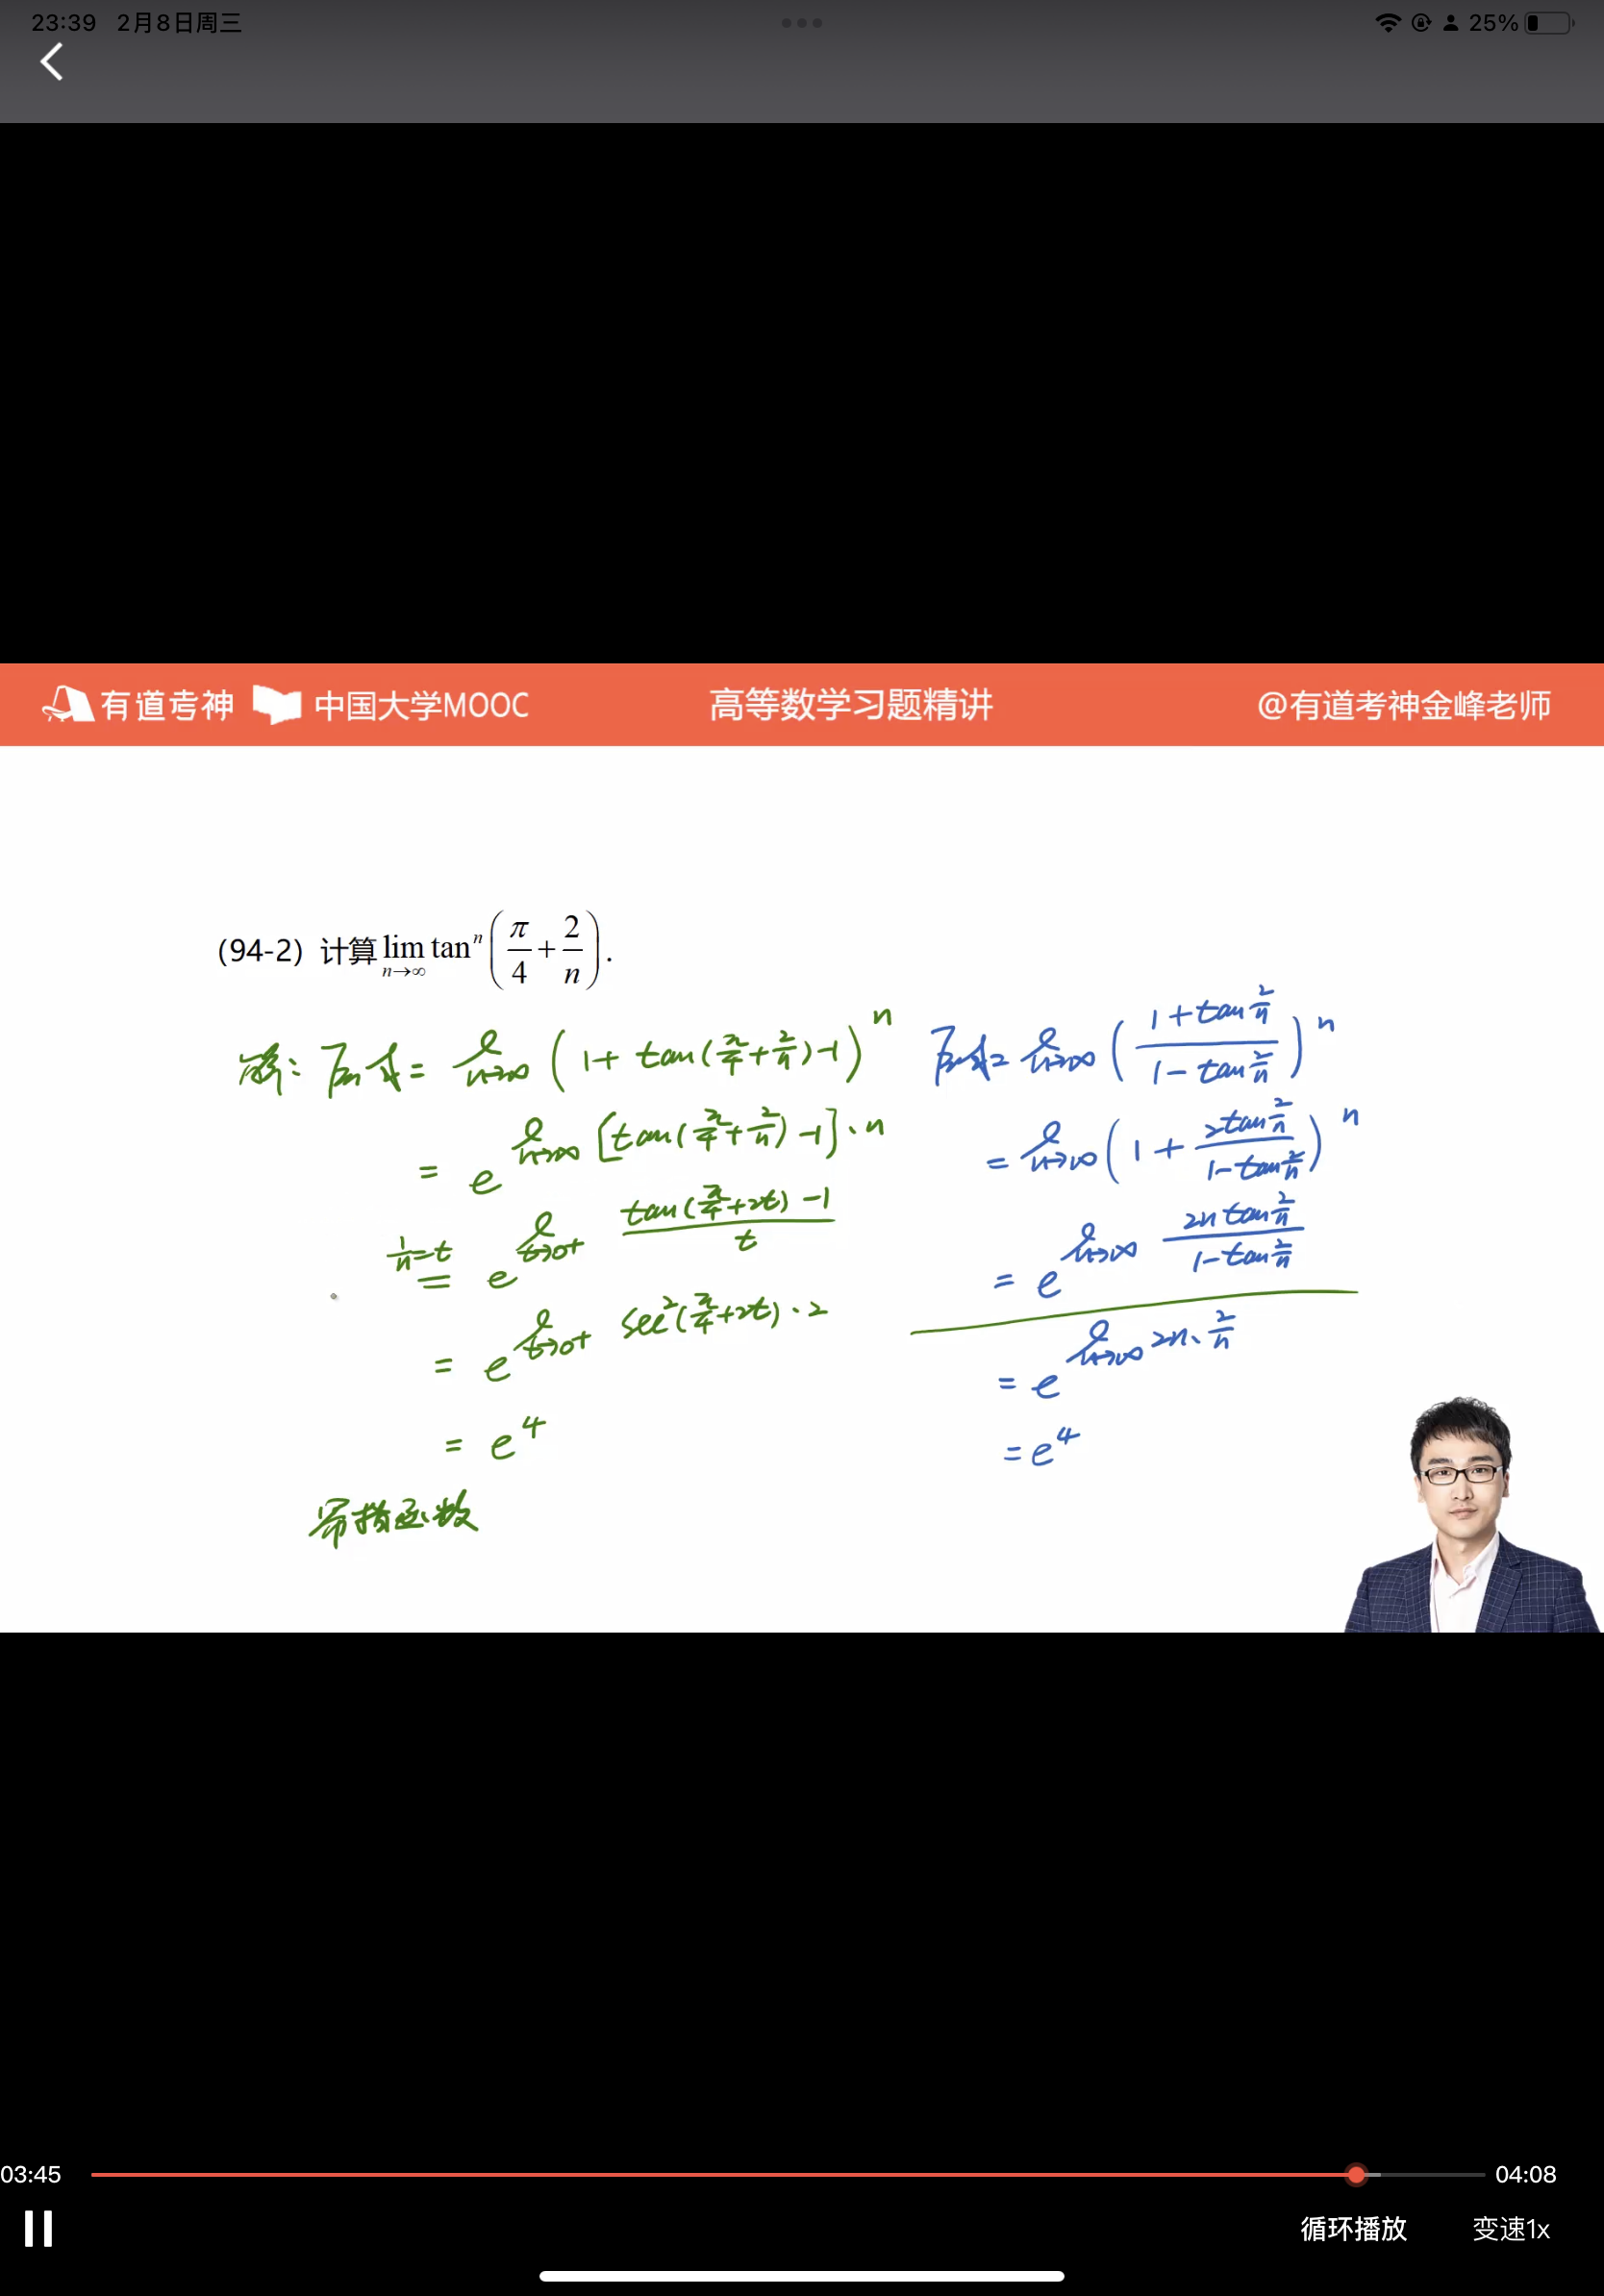 23:39 2月8日周三
25%
有道考神 中国大学MOOC 高等数学习题精讲 @有道考神金峰老师
（94-2）计算 lim n→∞ tanⁿ(π/4 + 2/n).
解: 原式 = lim n→∞ (1 + tan(π/4 + 2/n) - 1)^n
= e^{lim n→∞ [tan(π/4 + 2/n) - 1]·n}
1/n = t
= e^{lim t→0+ (tan(π/4 + 2t) - 1)/t}
= e^{lim t→0+ sec²(π/4 + 2t)·2}
= e^4
幂指函数
原式 = lim n→∞ ((1 + tan 2/n)/(1 - tan 2/n))^n
= lim n→∞ (1 + (2tan 2/n)/(1 - tan 2/n))^n
= e^{lim n→∞ (2n tan 2/n)/(1 - tan 2/n)}
= e^{lim n→∞ 2n·2/n}
= e^4
03:45 04:08
循环播放 变速1x